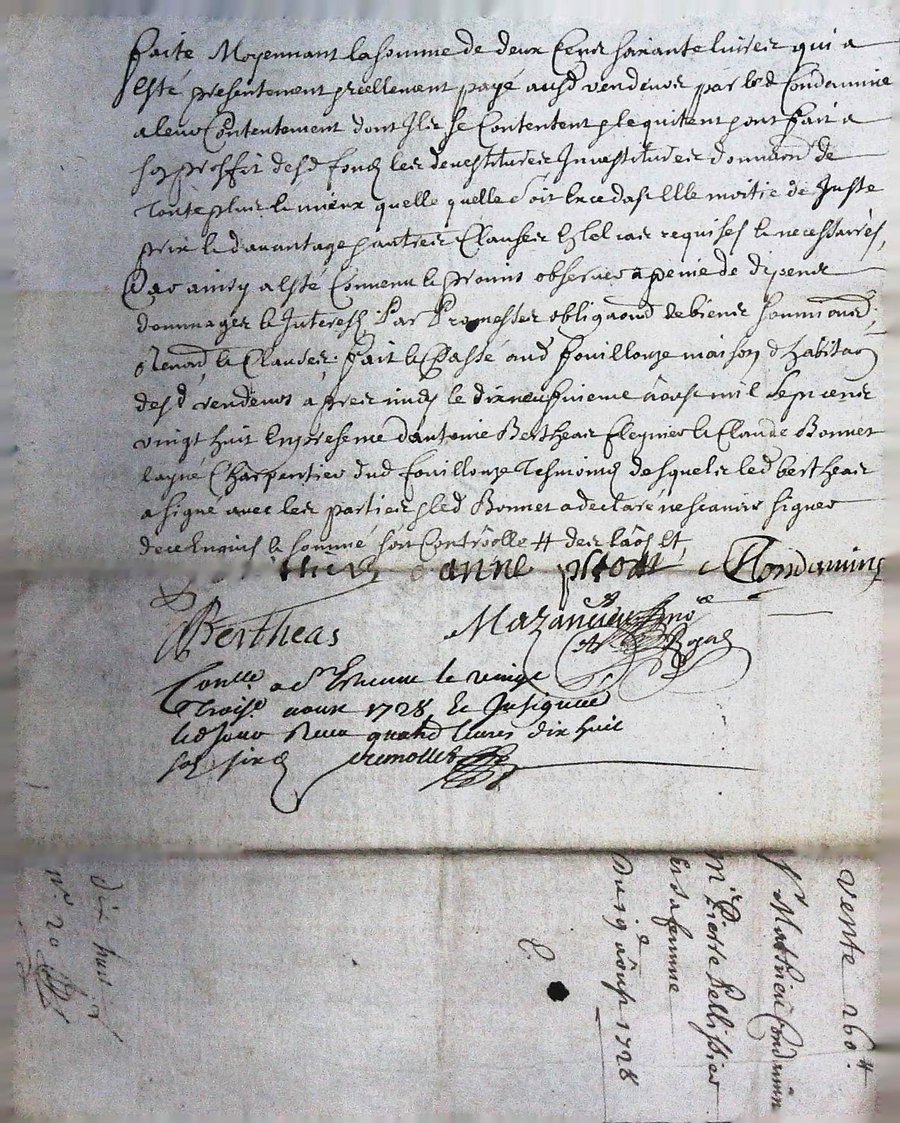 faite Moyennant la somme de deux Cens soixante livres qui a
esté presentement reellement payé ausd vendeurs par led Condamine
a leur Contentement dont Ils se Contentent & le quitent & ont fait a
son proffit desd fonds les devestitures Investitures donnaon de
toute plus & mieux quelle quelle soit Excedast Elle moitie de Juste
prix & davantage & autres Clauses Esleües requises & necessaires,
Car ainsy a Esté Convenu & promis observer a peine de depens
dommages & Interests, Par Promesses obligaons de biens soumissions,
Renons & Clauses. Fait & Passé aud fouillouze maison d'habitaon
desd vendeurs apres midy le dixneufvieme aoust mil sept cens
vingt huit En presence d'antoine Bertheas & Claude Bonnet
layné Charpentier dud fouillouze Tesmoins desquels led bertheas
a signé avec les parties & led Bonnet a declaré ne scavoir signer
de ce Enquis & sommé soit Controlle # des laos et,
anne Condamine
Bertheas Mazancieu
Royal
Conlle a St Estienne le vingt
Trois aoust 1728 & Insinué
led jour Receu quatre livres dix huit
sols six d cremollet
vente 260 #
Sr Matthieu Condamin
Mre Pierre Pellissier
Et sa femme
Du 19e aoust 1728
C
dix huit
no 20